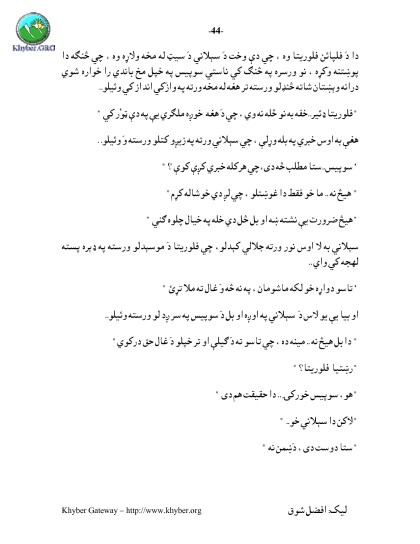 -44-
Khyber.ORG
دا دَ فلپائن فلوريتا وه ، چي دې وخت دَ سېلاني دَ سيټ له مخه ولاړه وه ، چي څنګه دا
پوښتنه وکړه ، نو ورسره په څنګ کي ناستي سوپيس په خپل مخ باندي را خواره شوي
درانه وېښتان شاته څنډلو ورسته تر هغه له مخه ورته په وازکي انداز کي وئيلو..
"فلوريتا ډئير..خفه به نو څله نه وي ، چي دَ هغه خوږه ملګري يې په دې ټور کي "
هغې به اوس خبري په بله وړلې ، چي سېلاني ورته په زيرو کتلو ورسته وَ وئيلو..
" سوپيس..ستا مطلب څه دی، چي هر کله خبري کړې کوې ؟ "
" هيڅ نه.. ما خو فقط دا غوښتلو ، چي لږ دي خوشاله کړم "
"هيڅ ضرورت يې نشته ښه او بل ځل دي خله په خيال چلوه ګني "
سېلاني به لا اوس نور ورته جلالي کېدلو ، چي فلوريتا دَ موسېدلو ورسته په ډېره پسته
لهجه کي وای..
" تاسو دواړه خو لکه ماشومان ، په نه څه وَ غال ته ملا تړئ "
او بيا يې يو لاس دَ سېلاني په اوږه او بل دَ سوپيس په سر ږد لو ورسته وئيلو..
" دا بل هيڅ نه.. مينه ده ، چي تاسو ته دَ ګيلې او تر خپلو دَ غال حق درکوي "
"رښتيا فلوريتا؟ "
"هو، سوپيس خورکۍ... دا حقيقت هم دی "
"لاکن دا سېلاني خو.. "
"ستا دوست دی ، دَښمن نه "
Khyber Gateway – http://www.khyber.org
ليک: افضل شوق